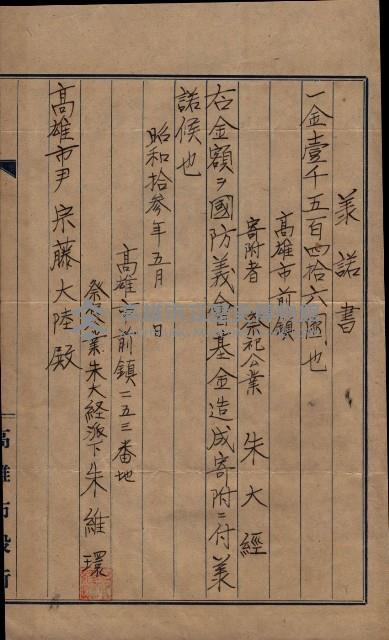 美諾書
一金壹千五百四拾六圓也
高雄市前鎮
寄附者 祭祀公業 朱大經
右金額ヲ國防義会基金造成寄附ニ付美
諾候也
昭和拾參年五月 日
高雄市前鎮二五三番地
祭祀公業朱大経派下朱維環
高雄市尹宗藤大陸殿
高雄市役所